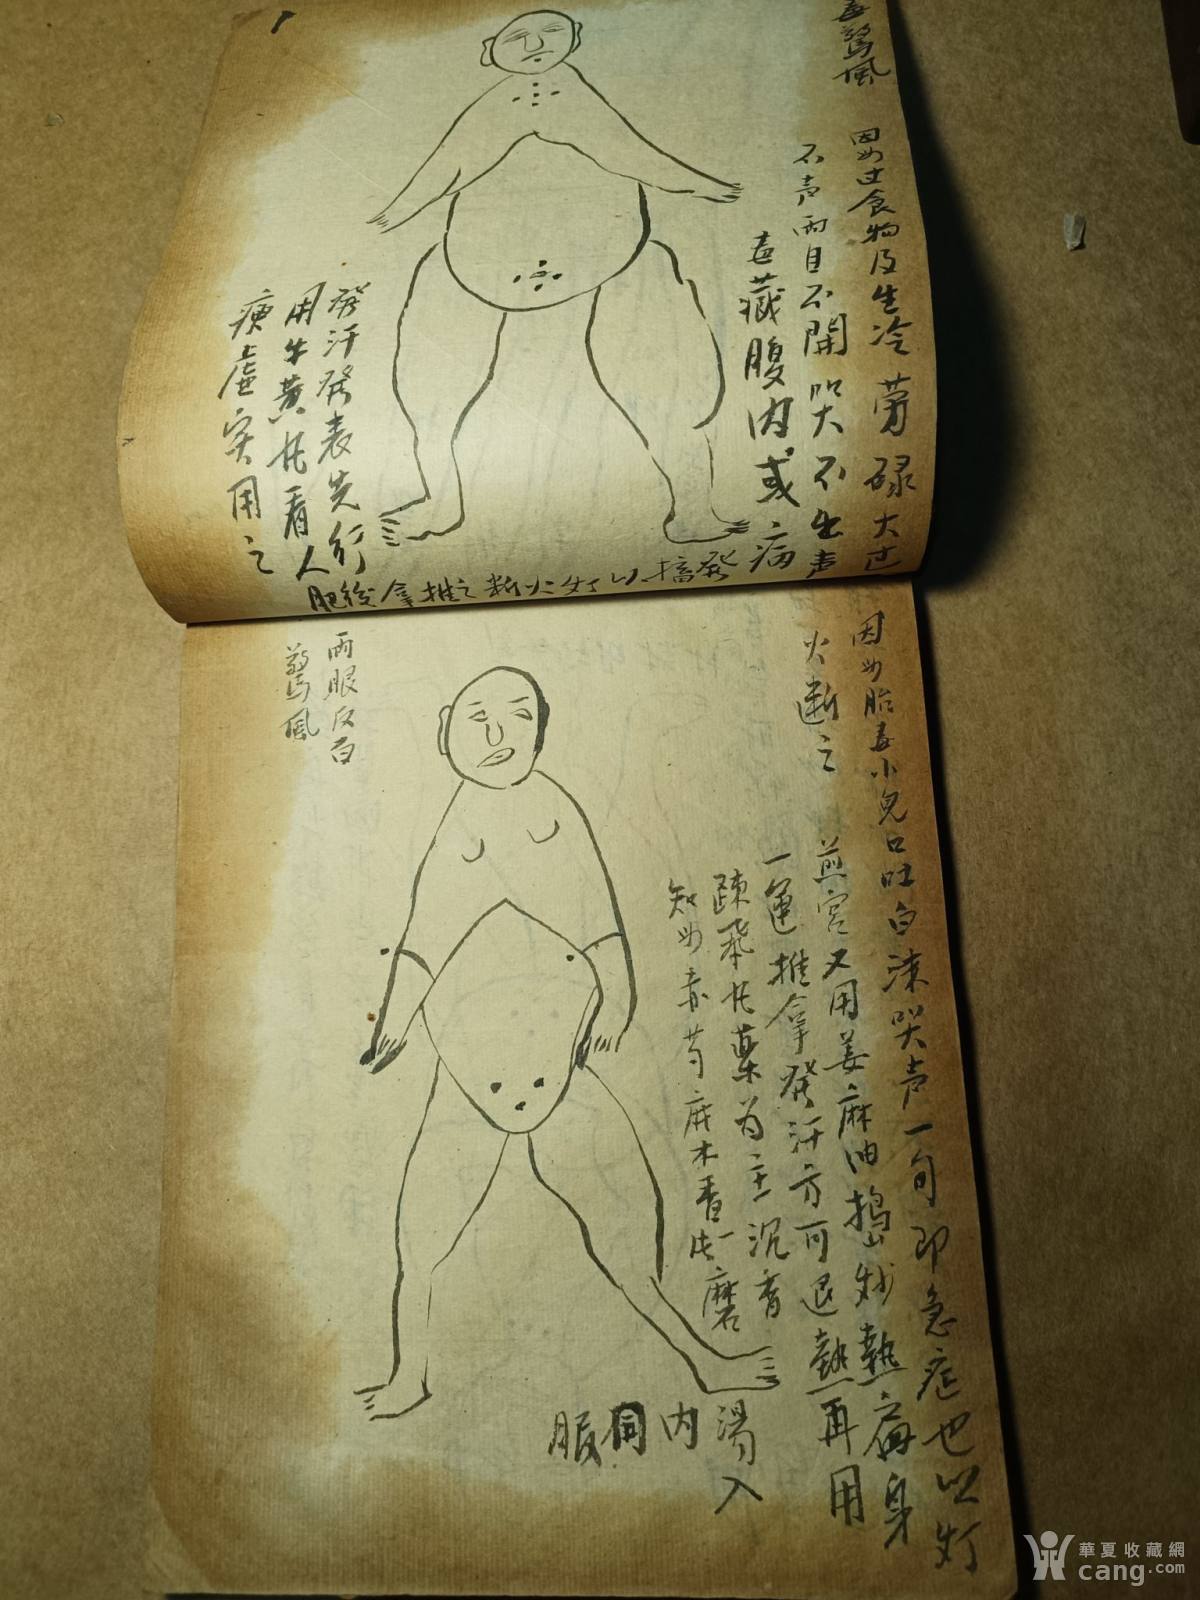 毒驚風
因如过食物及生冷劳碌大过
不声兩目不開哭不出声
毒藏腹内或病
發汗發表先行
用牛黄 看人
虚实用之
肥後拿推之断火灯以 發
因如胎毒小兒口吐白沫哭声一句即急症也以灯
火断之
煎宫又用姜麻油搗炒熱 身
一运推拿發汗方可退熱再用
疎 藥为主沉香
知如赤芍 木香 磨
湯入
内同服
兩眼反白
驚風
華夏收藏網
cang.com